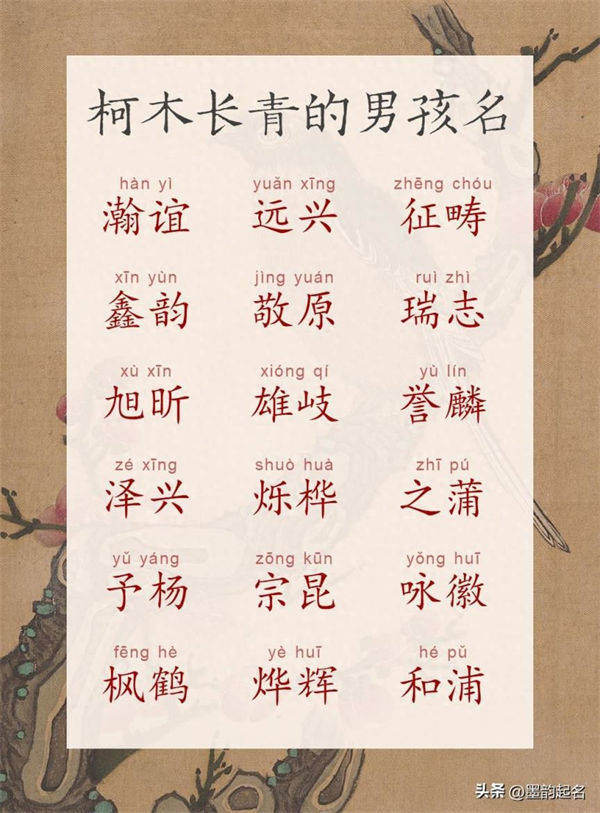 柯木长青的男孩名
hàn yì yuǎn xīng zhēng chóu
瀚谊 远兴 征畴
xīn yùn jìng yuán ruì zhì
鑫韵 敬原 瑞志
xù xīn xióng qí yù lín
旭昕 雄岐 誉麟
zé xīng shuò huà zhī pú
泽兴 烁桦 之蒲
yǔ yáng zōng kūn yǒng huī
予杨 宗昆 咏徽
fēng hè yè huī hé pǔ
枫鹤 烨辉 和浦
头条 @墨韵起名